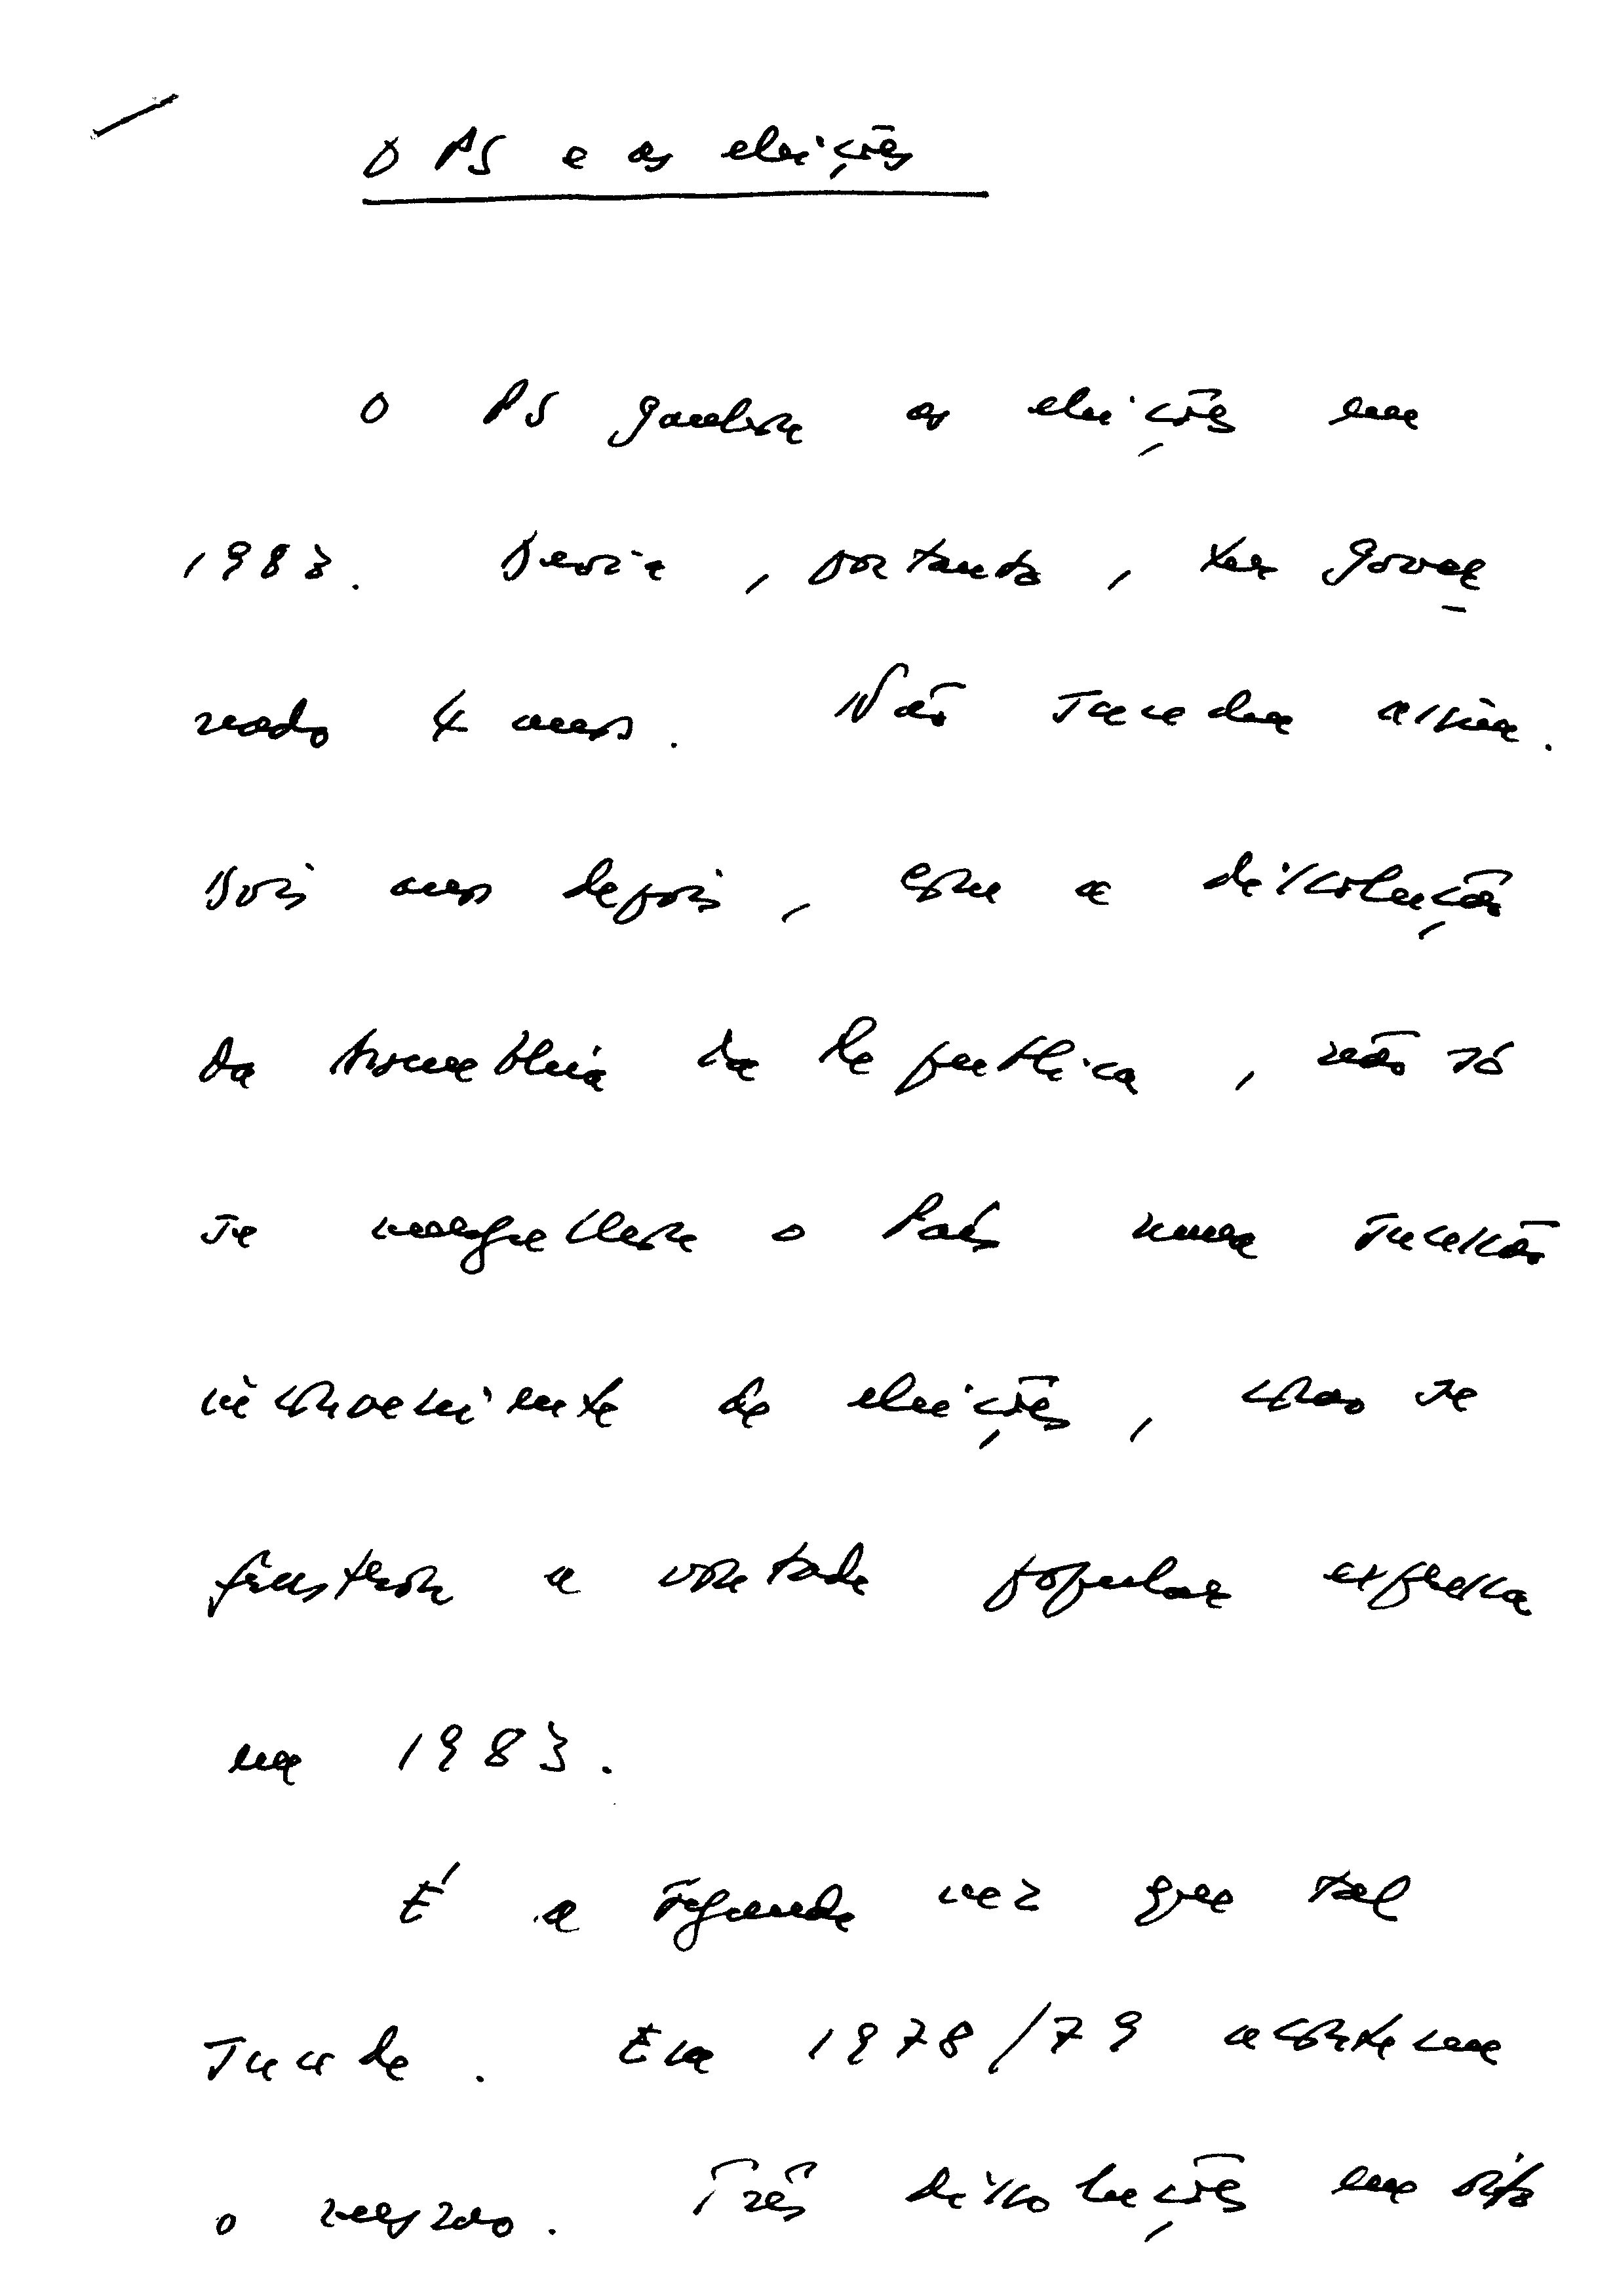 O PS e as eleições
O PS ganhou as eleições em
1983. Devia, portanto, ter gover
nado 4 anos. Não sucedeu assim.
Dois anos depois, com a dissolução
da Assembleia da Republica, não só
se mergulhou o País numa sucessão
inconveniente de eleições, como se
frustrou a vontade popular expressa
em 1983.
É a segunda vez que tal
sucede. Em 1978/79 aconteceu
o mesmo. Três dissoluções em oito